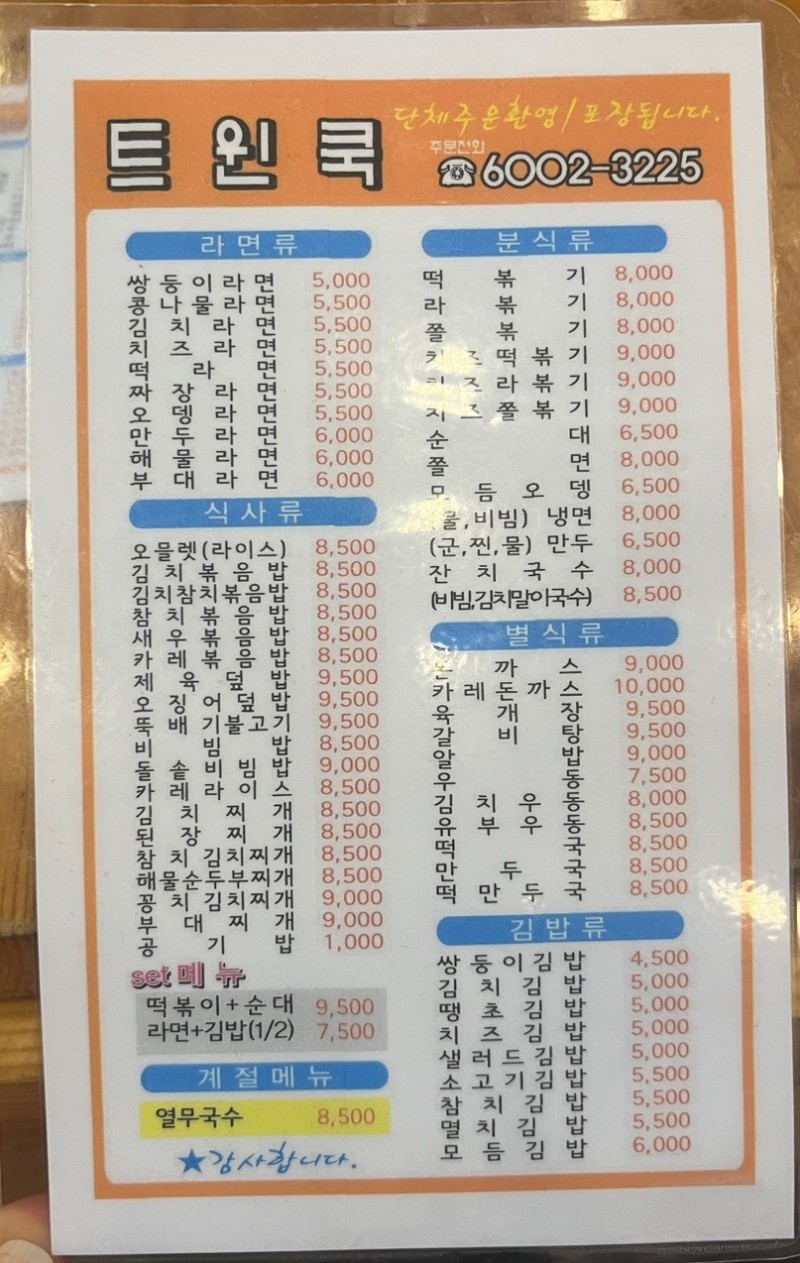 트윈쿡
단체주문환영/포장됩니다.
주문전화
☎6002-3225
라면류
쌍둥이라면 5,000
콩나물라면 5,500
김치라면 5,500
치즈라면 5,500
떡라면 5,500
짜장라면 5,500
오뎅라면 5,500
만두라면 6,000
해물라면 6,000
부대라면 6,000
식사류
오믈렛(라이스) 8,500
김치볶음밥 8,500
김치참치볶음밥 8,500
참치볶음밥 8,500
새우볶음밥 8,500
카레볶음밥 8,500
제육덮밥 9,500
오징어덮밥 9,500
뚝배기불고기 9,500
비빔밥 8,500
돌솥비빔밥 9,000
카레라이스 8,500
김치찌개 8,500
된장찌개 8,500
참치김치찌개 8,500
해물순두부찌개 8,500
꽁치김치찌개 9,000
부대찌개 9,000
공기밥 1,000
set메뉴
떡볶이+순대 9,500
라면+김밥(1/2) 7,500
계절메뉴
열무국수 8,500
★감사합니다.
분식류
떡볶기 8,000
라볶기 8,000
쫄볶기 8,000
치즈떡볶기 9,000
치즈라볶기 9,000
치즈쫄볶기 9,000
순대 6,500
쫄면 8,000
모듬오뎅 6,500
(물,비빔) 냉면 8,000
(군,찐,물) 만두 6,500
잔치국수 8,000
(비빔,김치말이국수) 8,500
별식류
돈까스 9,000
카레돈까스 10,000
육개장 9,500
갈비탕 9,500
알밥 9,000
우동 7,500
김치우동 8,000
유부우동 8,500
떡국 8,500
만두국 8,500
떡만두국 8,500
김밥류
쌍둥이김밥 4,500
김치김밥 5,000
땡초김밥 5,000
치즈김밥 5,000
샐러드김밥 5,000
소고기김밥 5,500
참치김밥 5,500
멸치김밥 5,500
모듬김밥 6,000